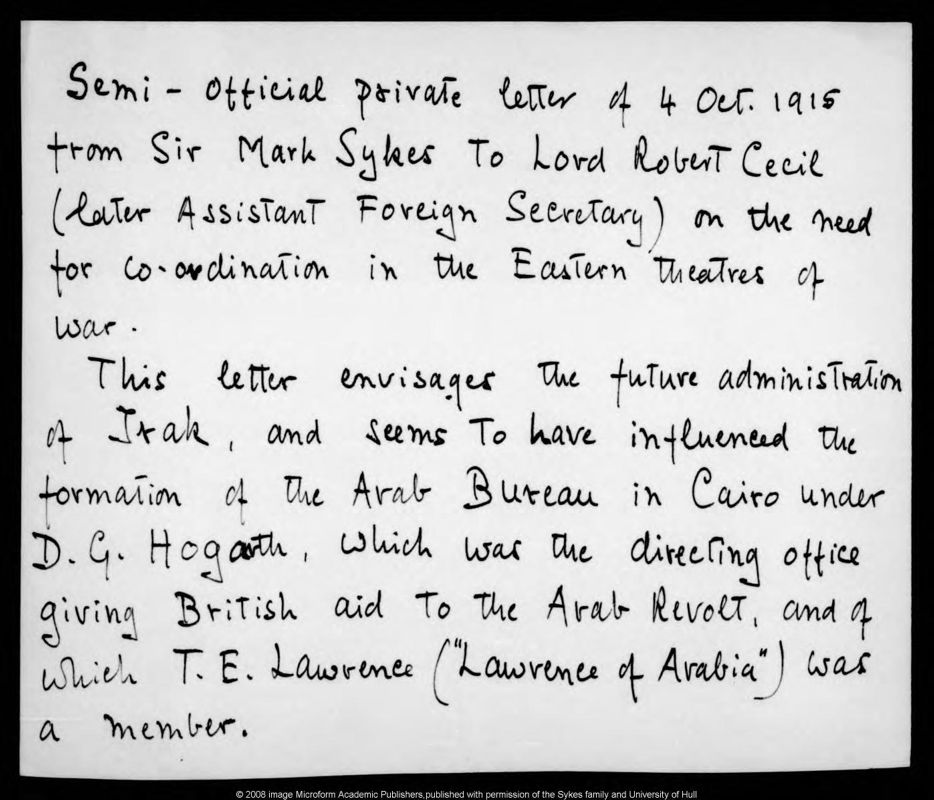 Semi-Official private letter of 4 Oct. 1915
from Sir Mark Sykes to Lord Robert Cecil
(later Assistant Foreign Secretary) on the need
for co-ordination in the Eastern theatres of
war.
This letter envisages the future administration
of Irak, and seems to have influenced the
formation of the Arab Bureau in Cairo under
D. G. Hogarth, which was the directing office
giving British aid to the Arab Revolt, and of
which T. E. Lawrence ("Lawrence of Arabia") was
a member.
© 2008 image Microform Academic Publishers,published with permission of the Sykes family and University of Hull